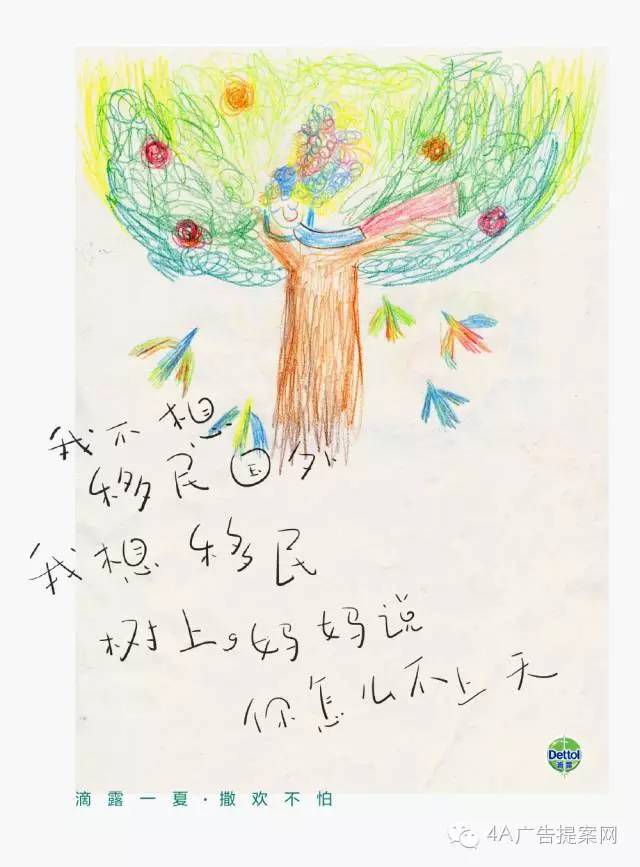 我不想
移民国外
我想移民
树上。妈妈说
你怎么不上天
Dettol
滴露
滴露一夏·撒欢不怕
4A广告提案网